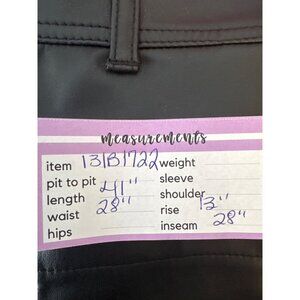 measurements
item 131B1722 weight
pit to pit sleeve
length 41" shoulder
waist 28" rise 13"
hips inseam 28"